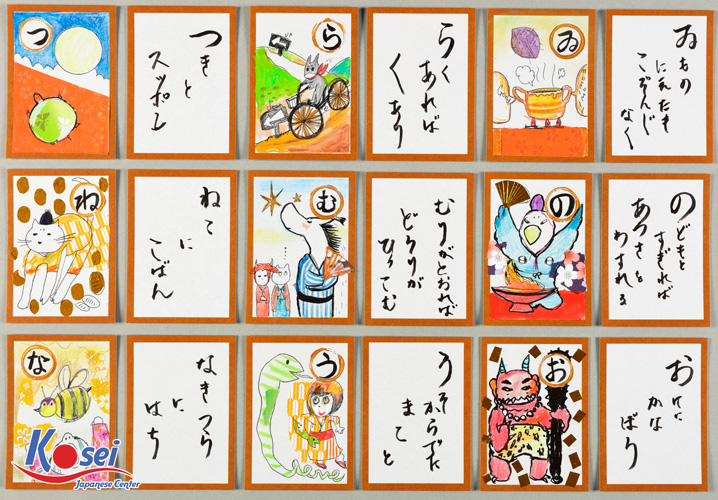 つ
つきと
スッポン
ら
らくあれば
くあり
ゐ
ゐもの
にえたも
ごぞんじ
なく
ね
ねこに
こばん
む
むりがとおれば
どうりが
ひっこむ
の
のどもと
すぎれば
あつさを
わすれる
な
なきつら
に
はち
う
うそからでた
まこと
お
おに
かな
Kosei
Japanese Center